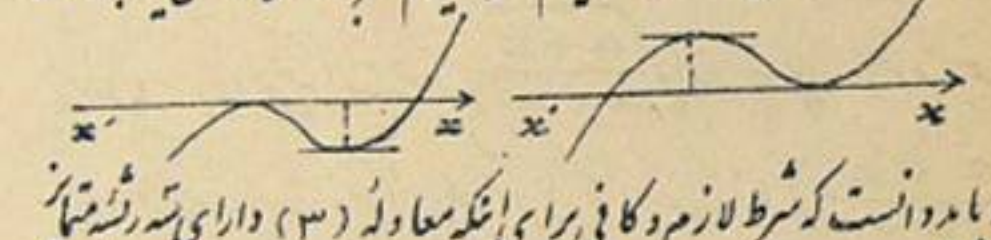 x′ x x′ x
باید دانست که شرط لازم و کافی برای اینکه معادلهٔ (۳) دارای سه ریشه متمایز